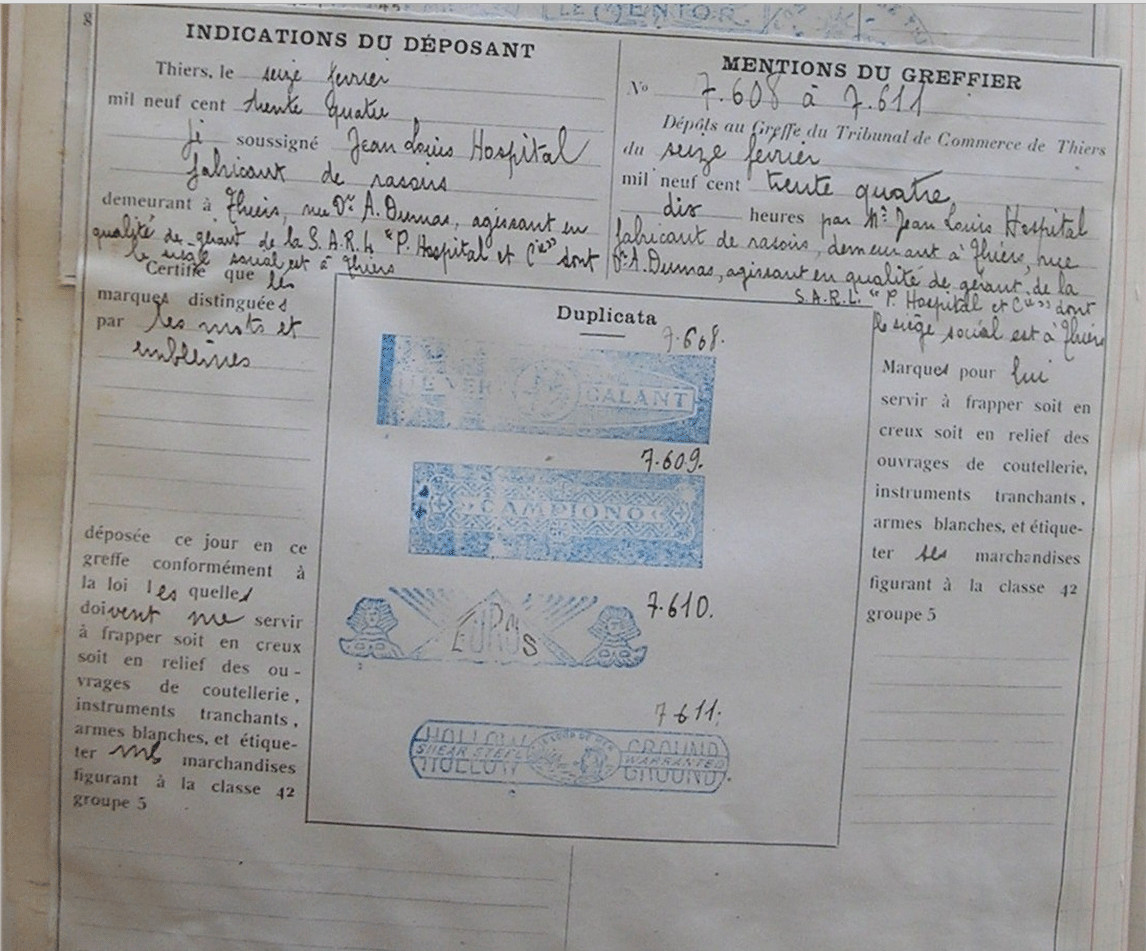 LE MENTOR
INDICATIONS DU DÉPOSANT
Thiers, le seize février
mil neuf cent trente quatre
Je soussigné Jean Louis Hospital
fabricant de rasoirs
demeurant à Thiers, rue Dr. A. Dumas, agissant en
qualité de gérant de la S.A.R.L. "P. Hospital et Cie" dont
le siège social est à Thiers
Certifie que les
marques distinguées
par les mots et
emblèmes
déposée ce jour en ce
greffe conformément à
la loi lesquelles
doivent me servir
à frapper soit en creux
soit en relief des ou-
vrages de coutellerie,
instruments tranchants,
armes blanches, et étique-
ter mes marchandises
figurant à la classe 42
groupe 5
Duplicata
7.608.
GALANT
7.609.
CAMPIONO
7.610.
7.611.
HOLLOW GROUND
SHEAR STEEL WARRANTED
HOLLOW GROUND
MENTIONS DU GREFFIER
No 7.608 à 7.611
Dépôts au Greffe du Tribunal de Commerce de Thiers
du seize février
mil neuf cent trente quatre
dix heures par Mr. Jean Louis Hospital
fabricant de rasoirs, demeurant à Thiers, rue
Dr. A. Dumas, agissant en qualité de gérant de la
S.A.R.L. "P. Hospital et Cie" dont
le siège social est à Thiers
Marques pour lui
servir à frapper soit en
creux soit en relief des
ouvrages de coutellerie,
instruments tranchants,
armes blanches, et étique-
ter ses marchandises
figurant à la classe 42
groupe 5